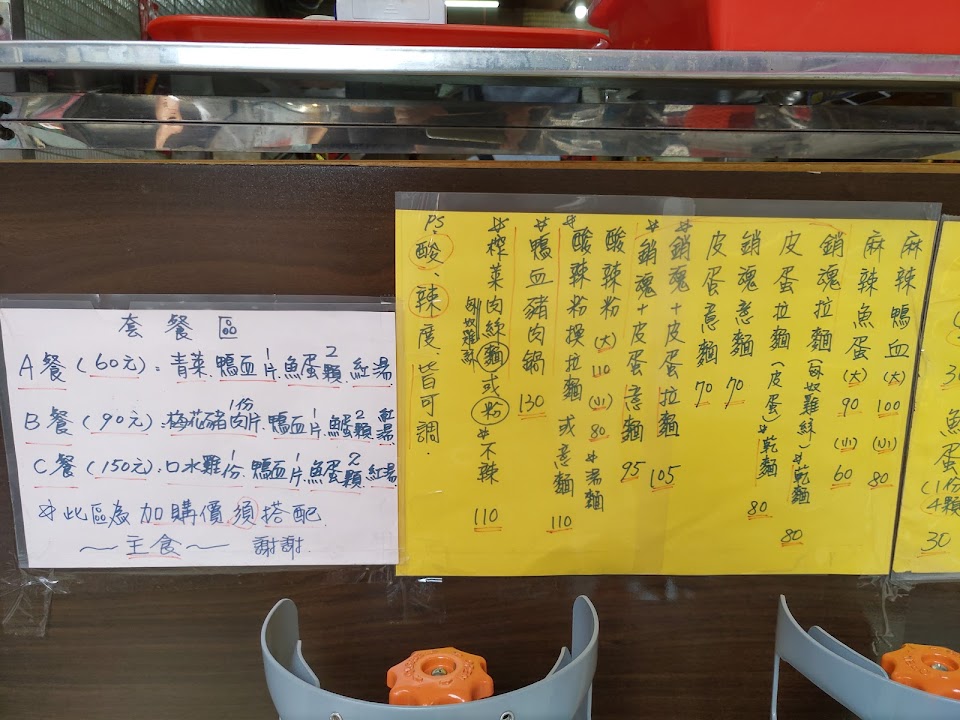 套餐區
A餐(60元):青菜、鴨血1片、魚蛋2顆、紅湯
B餐(90元):梅花豬肉片1份、鴨血1片、魚蛋2顆、紅湯
C餐(150元):口水雞1份、鴨血1片、魚蛋2顆、紅湯
*此區為加購價,須搭配
~主食~ 謝謝.
麻辣鴨血(大)100(小)80
麻辣魚蛋(大)90(小)60
銷魂拉麵(每奴雞絲)*乾麵 80
皮蛋拉麵(皮蛋)*乾麵 80
銷魂意麵 70
皮蛋意麵 70
*銷魂+皮蛋拉麵 105
*銷魂+皮蛋意麵 95
酸辣粉(大)110(小)80*湯麵
*酸辣粉換拉麵或意麵 110
*鴨血豬肉鍋 130
*榨菜肉絲麵或粉*不辣 110
每奴雞絲
PS.酸、辣度皆可調.
30
魚蛋(1份4顆)
30